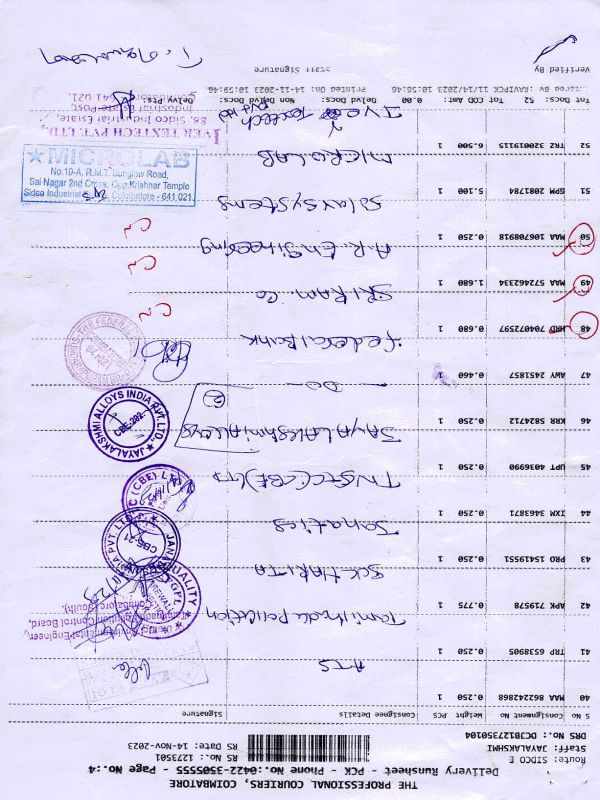 THE PROFESSIONAL COURIERS, COIMBATORE
Delivery Runsheet - PCK - Phone No.:0422-3505555 - Page No.:4
Route: SIDCO E
Staff: JAYALAKSHMI
DRS No.: DCJB127350104
RS No.: 1273501
RS Date: 14-Nov-2023
S No Consignment No Weight PCS Consignee Details Signature
40 MAA 862242868 0.250 1 ATS
41 TRT 6538905 0.250 1 Tamilnadu Pollution
42 APK 719578 0.775 1 SCK HARITA
43 PRO 15419551 0.250 1 Janatics
44 IXM 3463871 0.250 1 TNSTC (CBE) Ltd
45 UPT 4036990 0.250 1 JAYALAKSHMI Alloys
46 KRR 5824712 0.250 1 — DO —
47 AWY 2451857 0.460 1 federal Bank
48 HRD 704072597 0.680 1 SRI Ram. Co
49 MAA 572462334 1.680 1 A.R. Engineering
50 MAA 106708918 0.250 1 Solar Systems
51 GPM 2081784 5.100 1 MICRO LAB
52 TRZ 320019115 6.500 1
Tot Docs: 52 Tot COD Amt: 0.00 Delvd Docs: Non Delvd Docs: Delvd Pts:
:RAVIPCK 11/14/2023 10:55:46 Printed On: 14-11-2023 10:59:46
Verified By Staff Signature
JAYALAKSHMI ALLOYS INDIA PVT. LTD.
CBE-202
★MICROLAB
No.10-A, R.M.T. Bunglow Road,
Sai Nagar 2nd Cross, Opp.Krishnar Temple
Sidco Industrial Coimbatore - 641 021.
IVER TEXTECH PVT. LTD.,
86, Sidco Ind Estate,
Industrial Estate Post,
Coimbatore - 641 021.